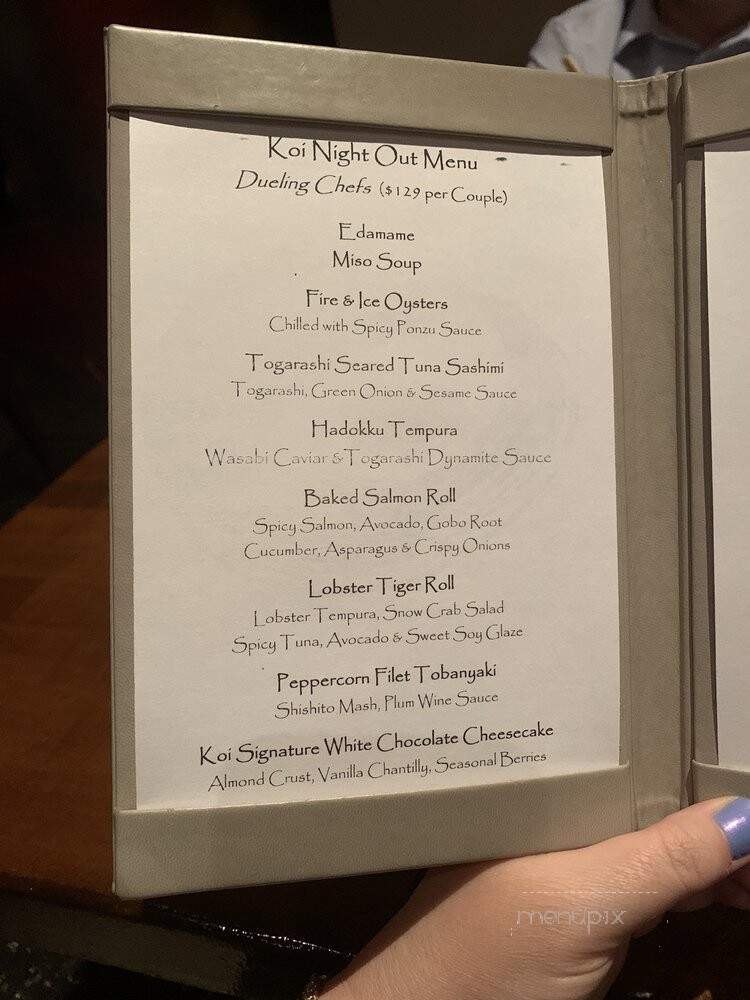 Koi Night Out Menu
Dueling Chefs ($129 per Couple)
Edamame
Miso Soup
Fire & Ice Oysters
Chilled with Spicy Ponzu Sauce
Togarashi Seared Tuna Sashimi
Togarashi, Green Onion & Sesame Sauce
Hadokku Tempura
Wasabi Caviar & Togarashi Dynamite Sauce
Baked Salmon Roll
Spicy Salmon, Avocado, Gobo Root
Cucumber, Asparagus & Crispy Onions
Lobster Tiger Roll
Lobster Tempura, Snow Crab Salad
Spicy Tuna, Avocado & Sweet Soy Glaze
Peppercorn Filet Tobanyaki
Shishito Mash, Plum Wine Sauce
Koi Signature White Chocolate Cheesecake
Almond Crust, Vanilla Chantilly, Seasonal Berries
menupix